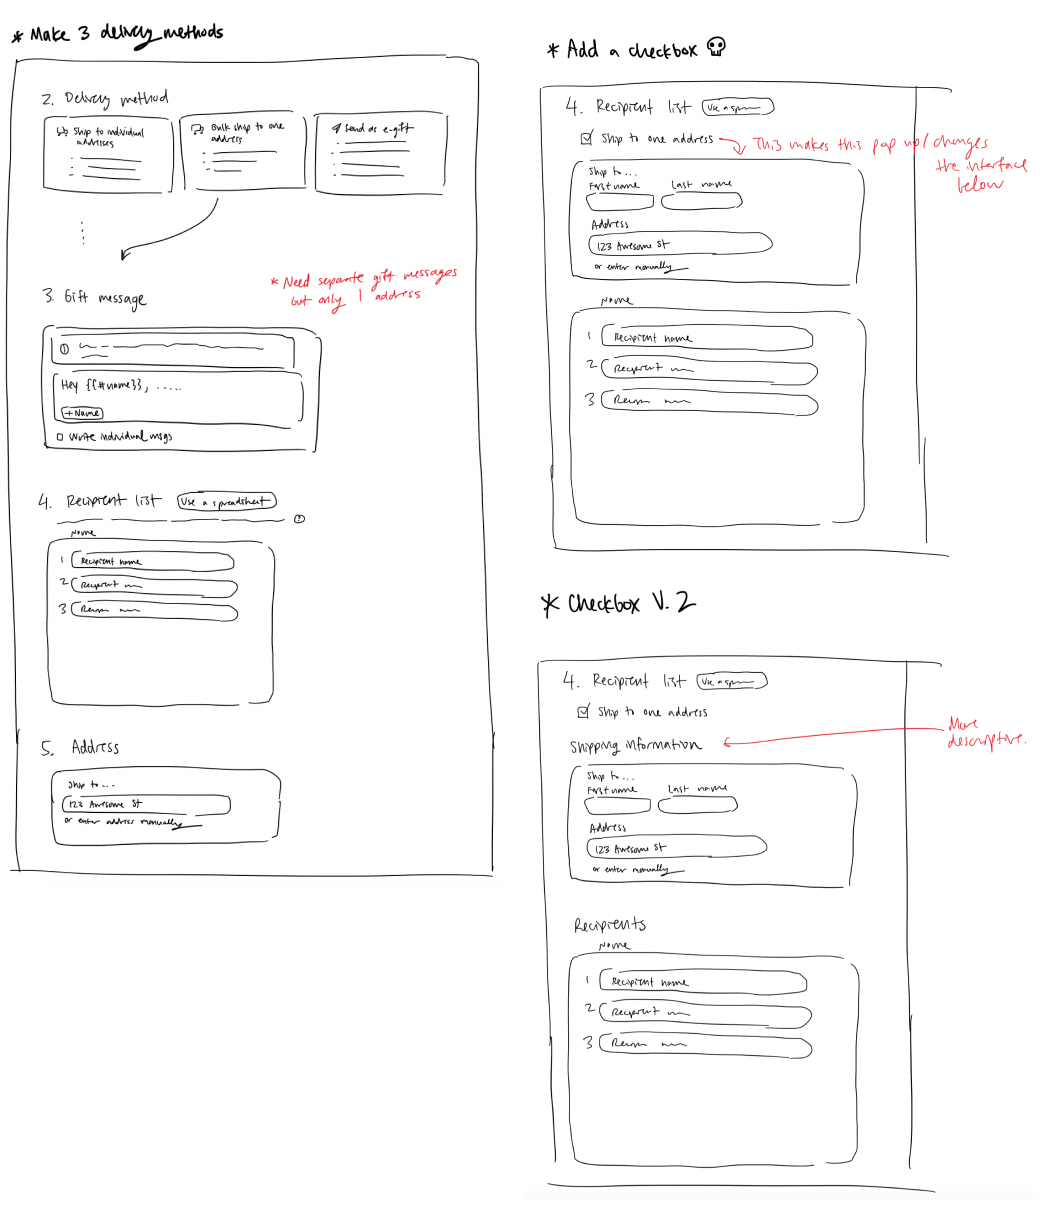 * Make 3 delivery methods
2. Delivery method
Ship to individual
addresses
Bulk ship to one
address
Send as e-gift
* Need separate gift messages
but only 1 address
3. Gift message
Hey {{#name}}, .....
+ Name
Write individual msgs
4. Recipient list
Use a spreadsheet
Name
1 Recipient name
2 Recipient
3
5. Address
Ship to ...
123 Awesome St
or enter address manually
* Add a checkbox
4. Recipient list
Use a
Ship to one address
This makes this pop up / changes
the interface
below
Ship to...
First name Last name
Address
123 Awesome St
or enter manually
Name
1 Recipient name
2 Recipient
3
* Checkbox V.2
4. Recipient list
Use a
Ship to one address
Shipping information
More
descriptive.
Ship to...
First name Last name
Address
123 Awesome St
or enter manually
Recipients
Name
1 Recipient name
2 Recipient
3